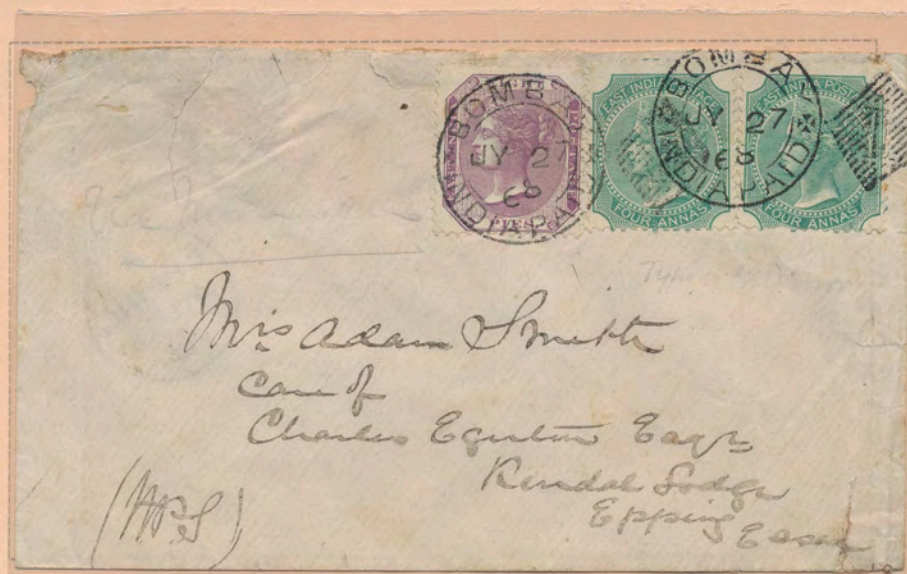 BOMBAY
JY 27
68
INDIA PAID
PIES
EAST INDIA POSTAGE
FOUR ANNAS
BOMBAY
JY 27
68
INDIA PAID
EAST INDIA POSTAGE
FOUR ANNAS
Type
Mrs Adam Smith
Care of
Charles Egerton Esqre
Kendal Lodge
Epping
Essex